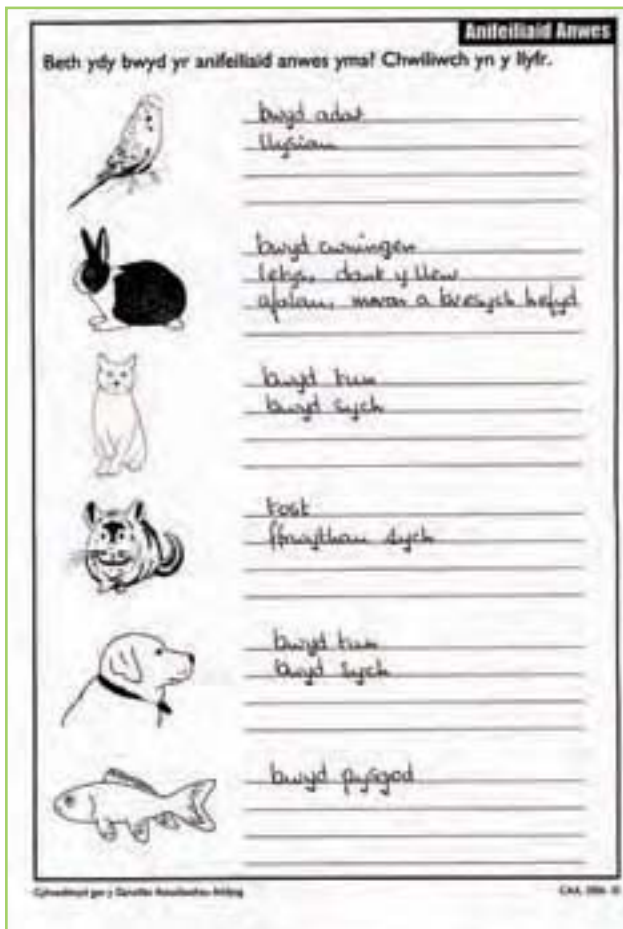 Anifeiliaid Anwes
Beth ydy bwyd yr anifeiliaid anwes yma? Chwiliwch yn y llyfr.
bwyd adar
llysiau
bwyd cwningen
letys, dant y llew
afalau, moron a bresych hefyd
bwyd tun
bwyd sych
tost
ffrwythau sych
bwyd tun
bwyd sych
bwyd pysgod
CAA